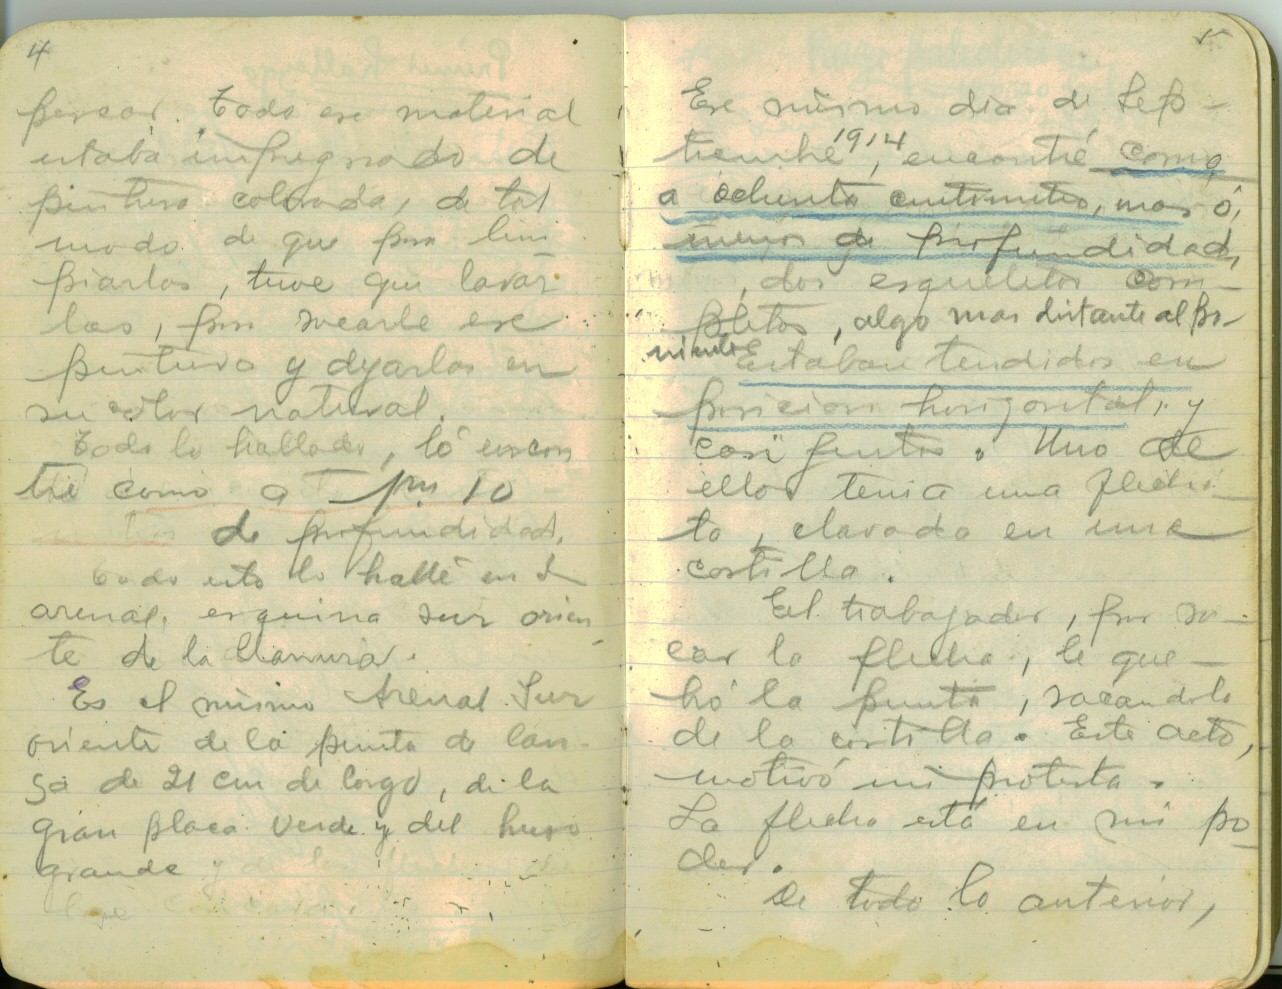 4
pescar. Todo ese material
estaba impregnado de
pintura colorada, de tal
modo de que para lim
piarlos, tuve que lavar
los, para sacarle esa
pintura y dejarlos en
su color natural.
Todo lo hallado, lo encon
tré como a 10
de profundidad.
Todo esto lo hallé en el
arenal, esquina sur orien
te de la llanura.
Es el mismo Arenal Sur
oriente de la punta de lan
za de 21 cm de largo, de la
gran placa verde y del hueso
grande y de las
5
Ese mismo dia de Sep-
tiembre 1914, encontré como
a ochenta centimetros, mas ó,
menos de profundidad,
, dos esqueletos com-
pletos, algo mas distante al po-
niente Estaban tendidos en
posicion horizontal, y
casi juntos. Uno de
ellos tenia una flechi-
ta, clavada en una
costilla.
El trabajador, por sa-
car la flecha, le que-
bró la punta, sacandola
de la costilla. Este acto,
motivó mi protesta.
La flecha está en mi po-
der.
De todo lo anterior,